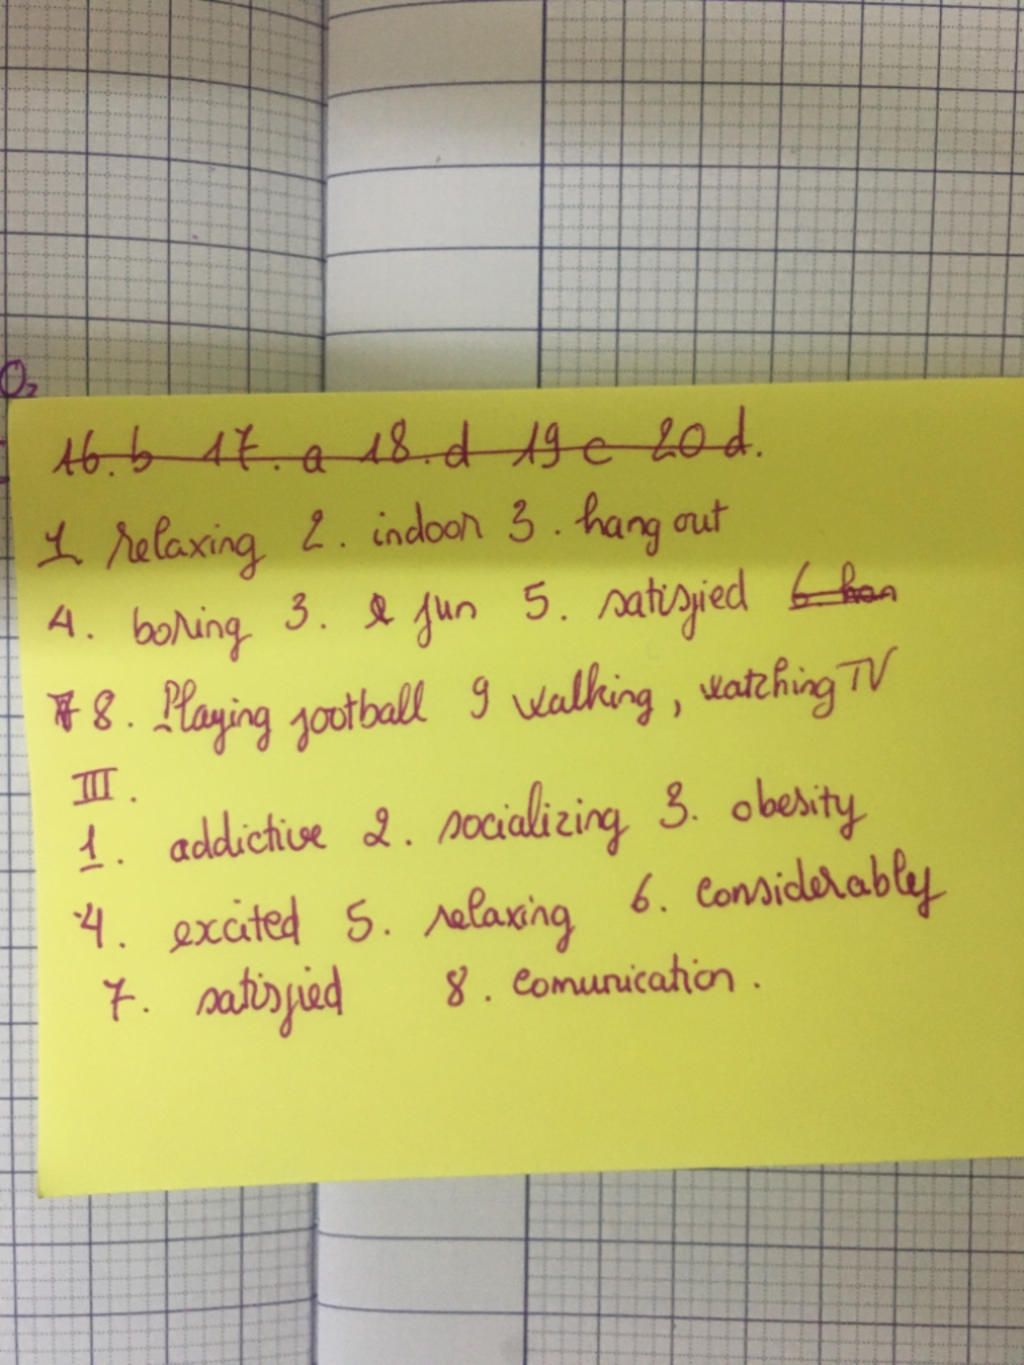 O₂
16. b 17. a 18. d 19 c 20 d.
1 relaxing 2. indoor 3. hang out
4. boring 3. fun 5. satisfied 6. han
8. Playing football 9 walking, watching TV
III.
1. addictive 2. socializing 3. obesity
4. excited 5. relaxing 6. considerably
7. satisfied 8. comunication.